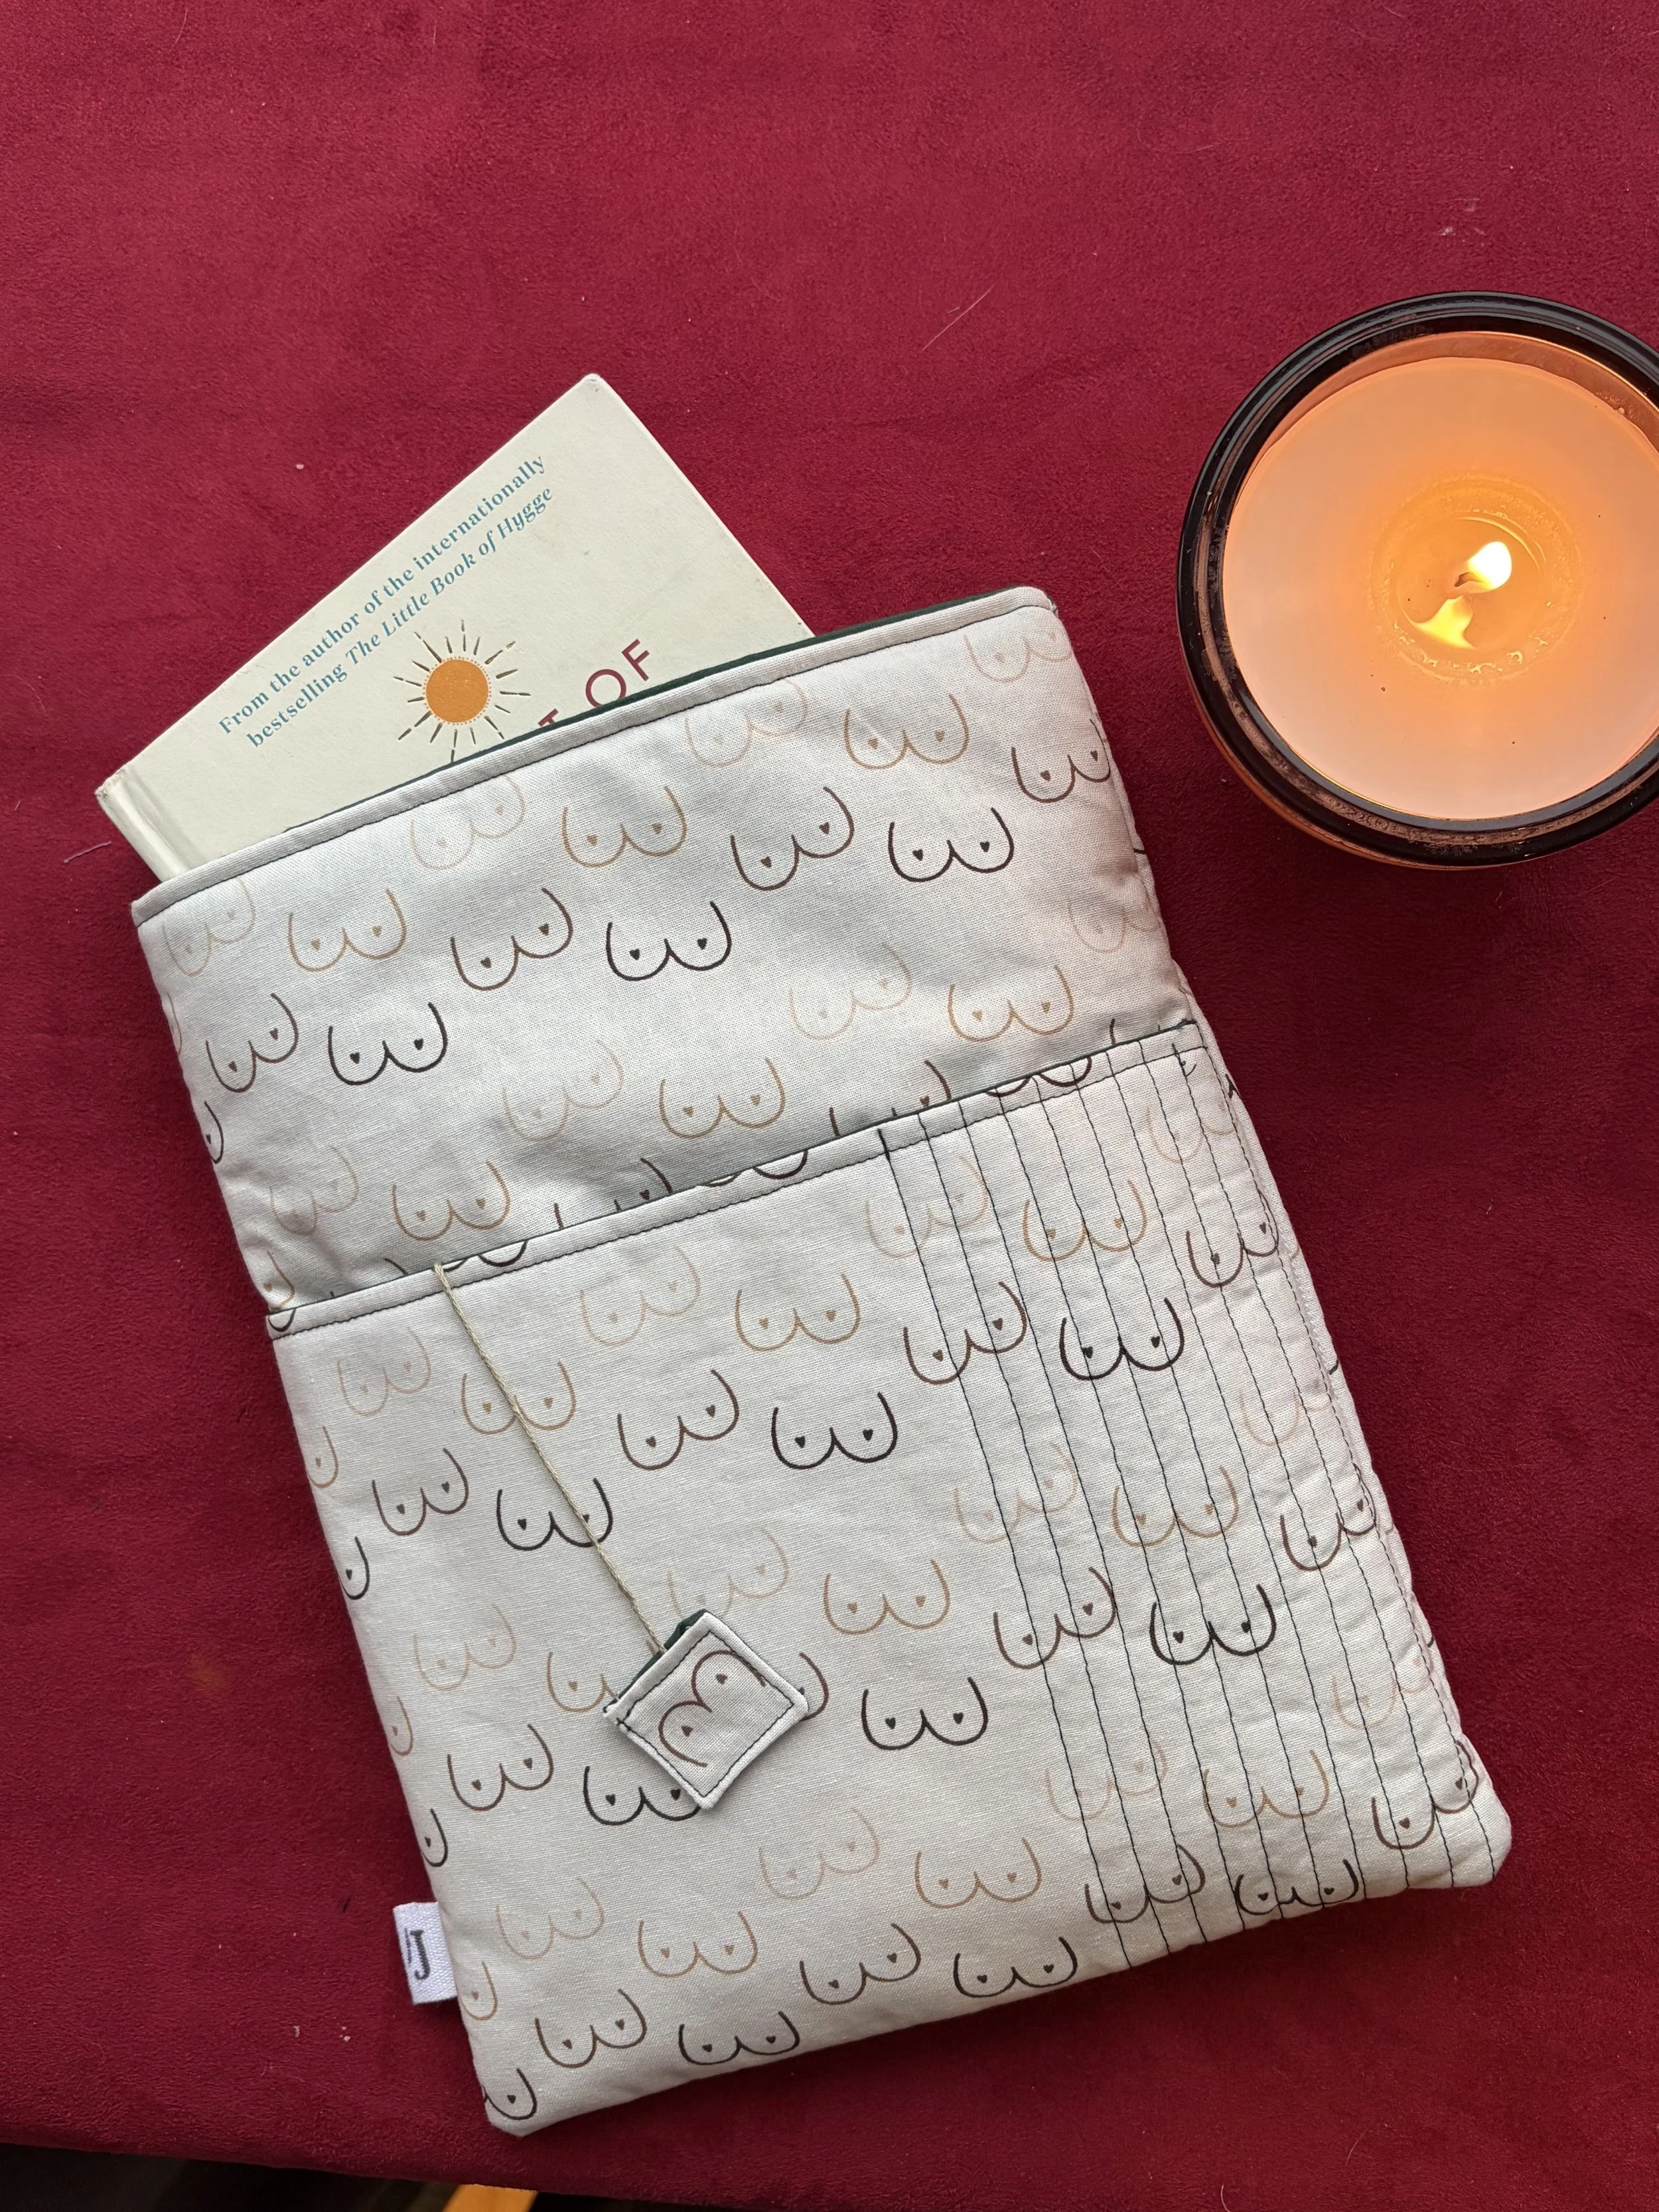 From the author of the internationally
bestselling The Little Book of Hygge
OF
J